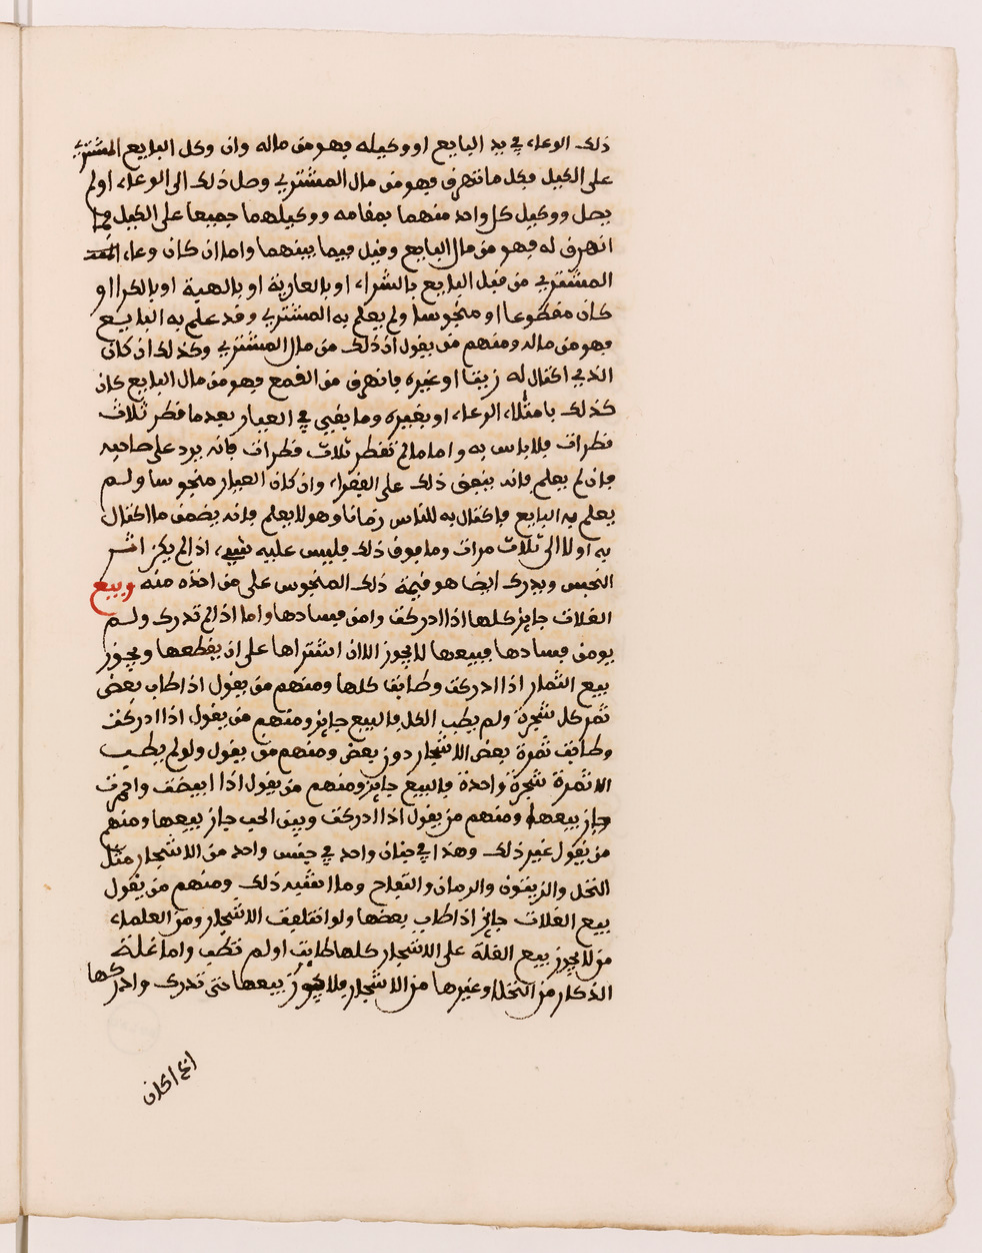 ذلك الوعاء في يد البايع او وكيله فهو من ماله وان وكل البايع المشتري
على الكيل فكل ما انهرق فهو من مال المشتري وصل ذلك الى الوعاء او لم
يصل ووكيل كل واحد منهما بمقامه ووكيلهما جميعا على الكيل فما
انهرق له فهو من مال البايع وقيل فيما بينهما واما ان كان وعاء
المشتري من قبل البايع بالشراء او بالعارية او بالهبة او بالكرا او
كان مقطوعا او منجوسا ولم يعلم به المشتري وقد علم به البايع
فهو من ماله ومنهم من يقول ان ذلك من مال المشتري وكذلك ان كان
الذي اكتال له زيتا او غيره فانهرق من القمع فهو من مال البايع كان
كذلك بامتلاء الوعاء او بغيره وما بقي في العيار بعد ما قطر ثلاث
قطرات فلا باس به واما ما لم تقطر ثلاث قطرات فانه يرد على صاحبه
فان لم يعلم فانه ينفق ذلك على الفقراء وان كان العيار منجوسا ولم
يعلم به البايع فاكتال به للناس زمانا وهو لا يعلم فانه يضمن ما اكتال
به اولا الى ثلاث مرات وما فوق ذلك فليس عليه شيء اذا لم يكن اثر
النجس ويدرك ايضا هو قيمة ذلك المنجوس على من اخذه منه وبيع
الغلات جايز كلها اذا ادركت وامن فسادها واما اذا لم تدرك ولم
يومن فسادها فبيعها لا يجوز الا ان اشتراها على ان يقطعها ويجوز
بيع الثمار اذا ادركت وطابت كلها ومنهم من يقول اذا طاب بعض
ثمر كل شجرة ولم يطب الكل فالبيع جايز ومنهم من يقول اذا ادركت
وطابت ثمرة بعض الاشجار دون بعض ومنهم من يقول ولو لم يطب
الا ثمرة شجرة واحدة فالبيع جايز ومنهم من يقول اذا ابيضت واحمرت
جاز بيعها ومنهم من يقول اذا ادركت وبيق الحب جاز بيعها ومنهم
من يقول غير ذلك وهذا في جنان واحد في جنس واحد من الاشجار مثل
النخل والزيتون والرمان والتفاح وما اشبه ذلك ومنهم من يقول
بيع الغلات جايز اذا طاب بعضها ولو اختلفت الاشجار ومن العلماء
من لا يجوز بيع الغلة على الاشجار كلها طابت او لم تطب واما غلة
الذكار من النخل او غيرها من الاشجار فلا يجوز بيعها حتى تدرك وادركها